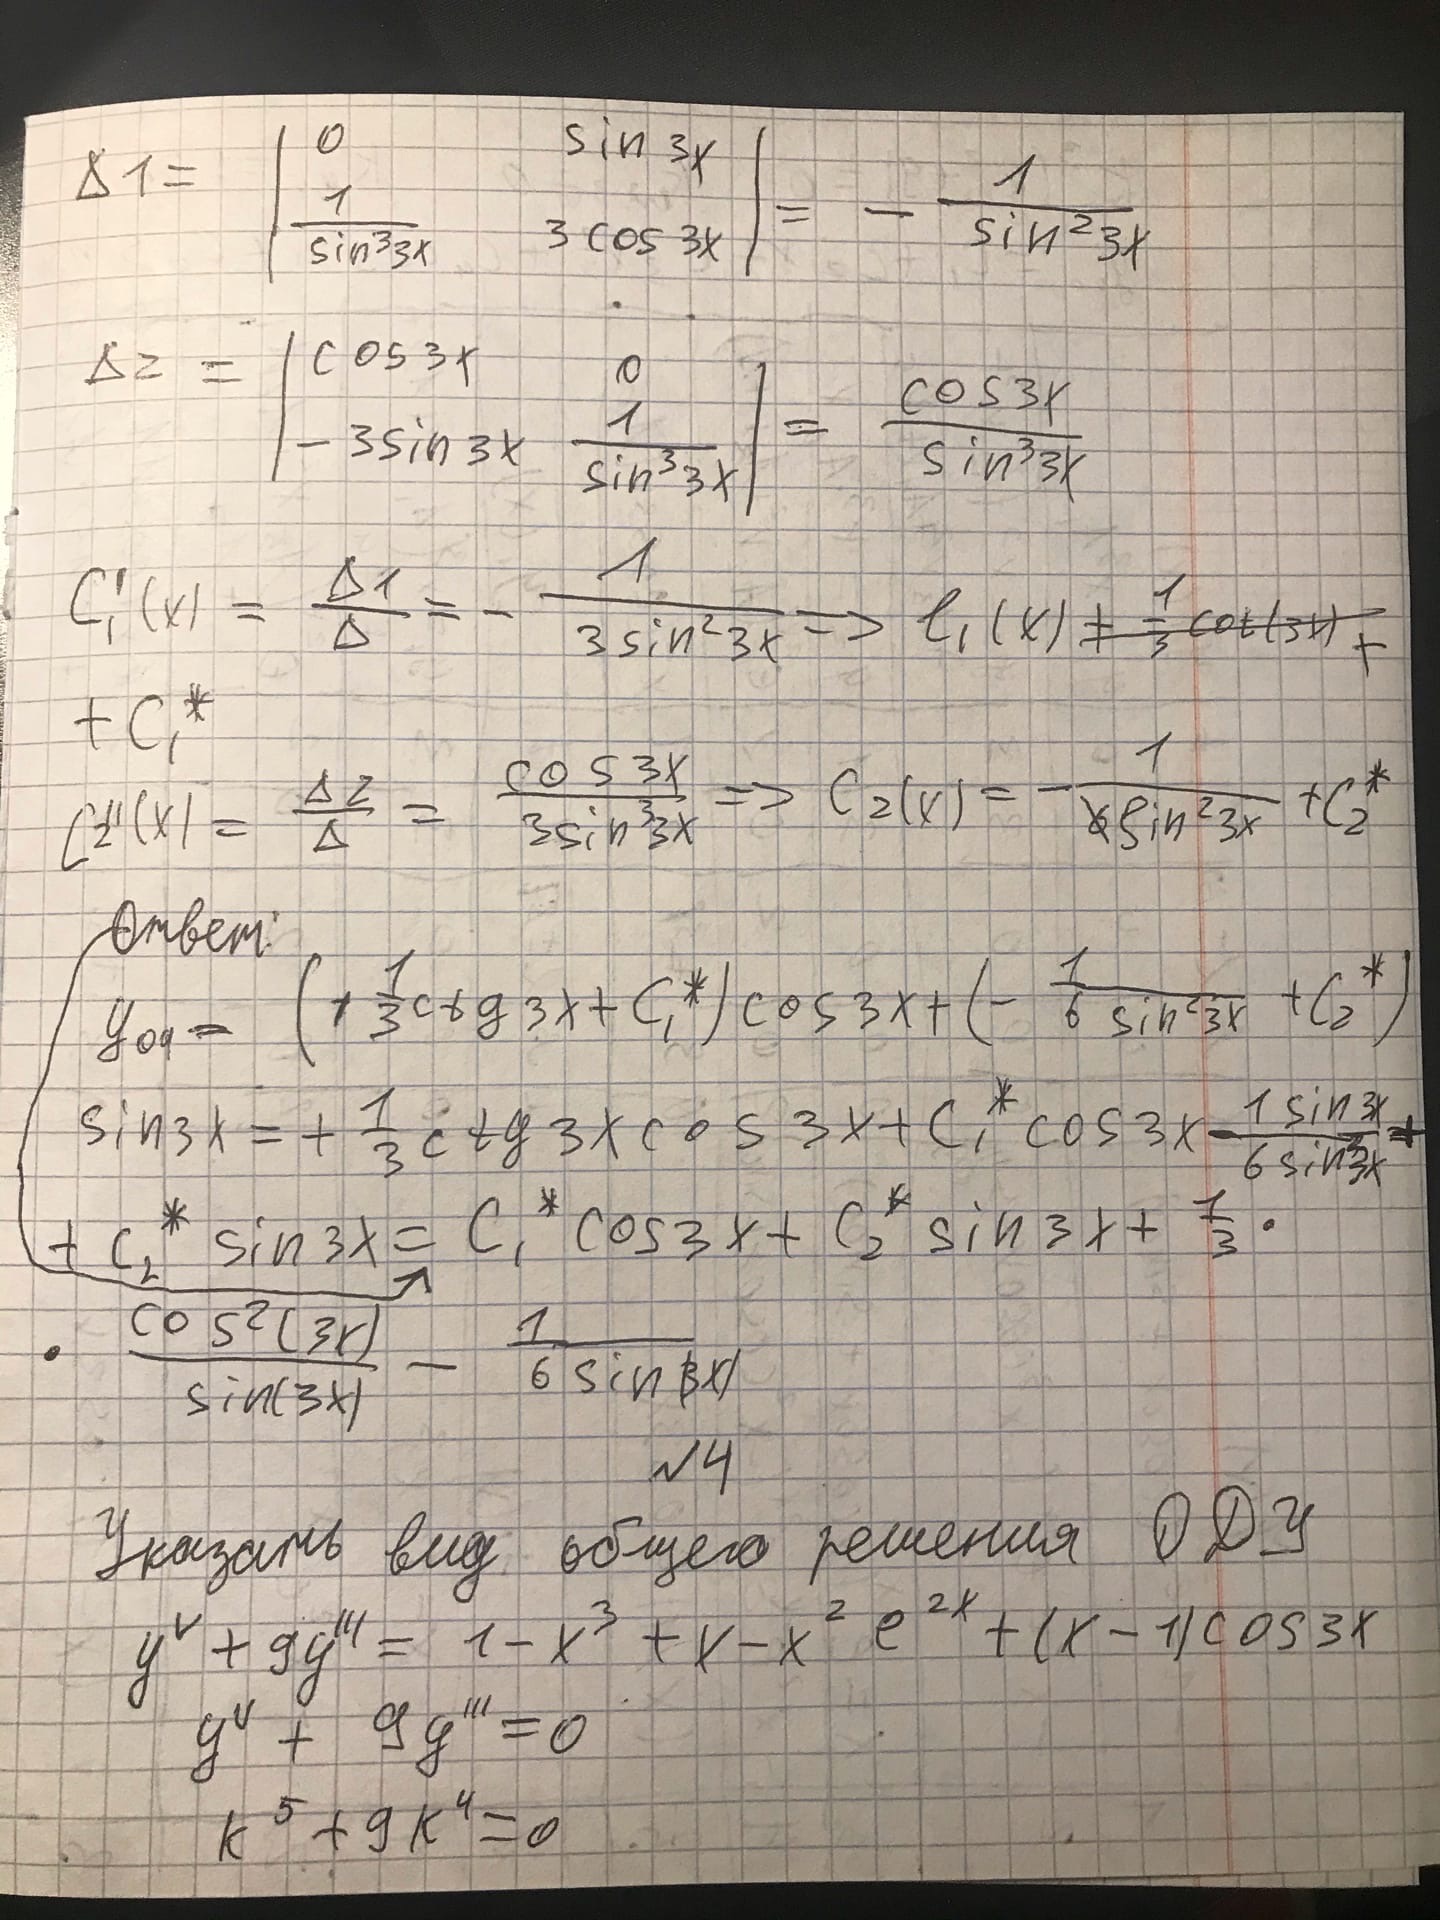 Δ1 = | 0 sin 3x ; 1/sin³3x 3cos 3x | = - 1/sin²3x
Δ2 = | cos3x 0 ; -3sin3x 1/sin³3x | = cos3x/sin³3x
C₁'(x) = Δ1/Δ = - 1/(3sin²3x) => C₁(x) = 1/3 cot(3x) +
+ C₁*
C₂'(x) = Δ2/Δ = cos3x/(3sin³3x) => C₂(x) = - 1/(sin²3x) + C₂*
Ответ:
yод = (+ 1/3 ctg 3x + C₁*) cos3x + (- 1/(6 sin²3x) + C₂*)
sin3x = + 1/3 ctg 3x cos 3x + C₁* cos3x - 1 sin3x/(6 sin²3x) +
+ C₂* sin3x = C₁* cos3x + C₂* sin3x + 1/3 ·
· cos²(3x)/sin(3x) - 1/(6 sin(3x))
№4
Указать вид общего решения ОДУ
yⱽ + 9y''' = 1 - x³ + x - x² e²ˣ + (x - 1)cos3x
yⱽ + 9y''' = 0
k⁵ + 9k⁴ = 0